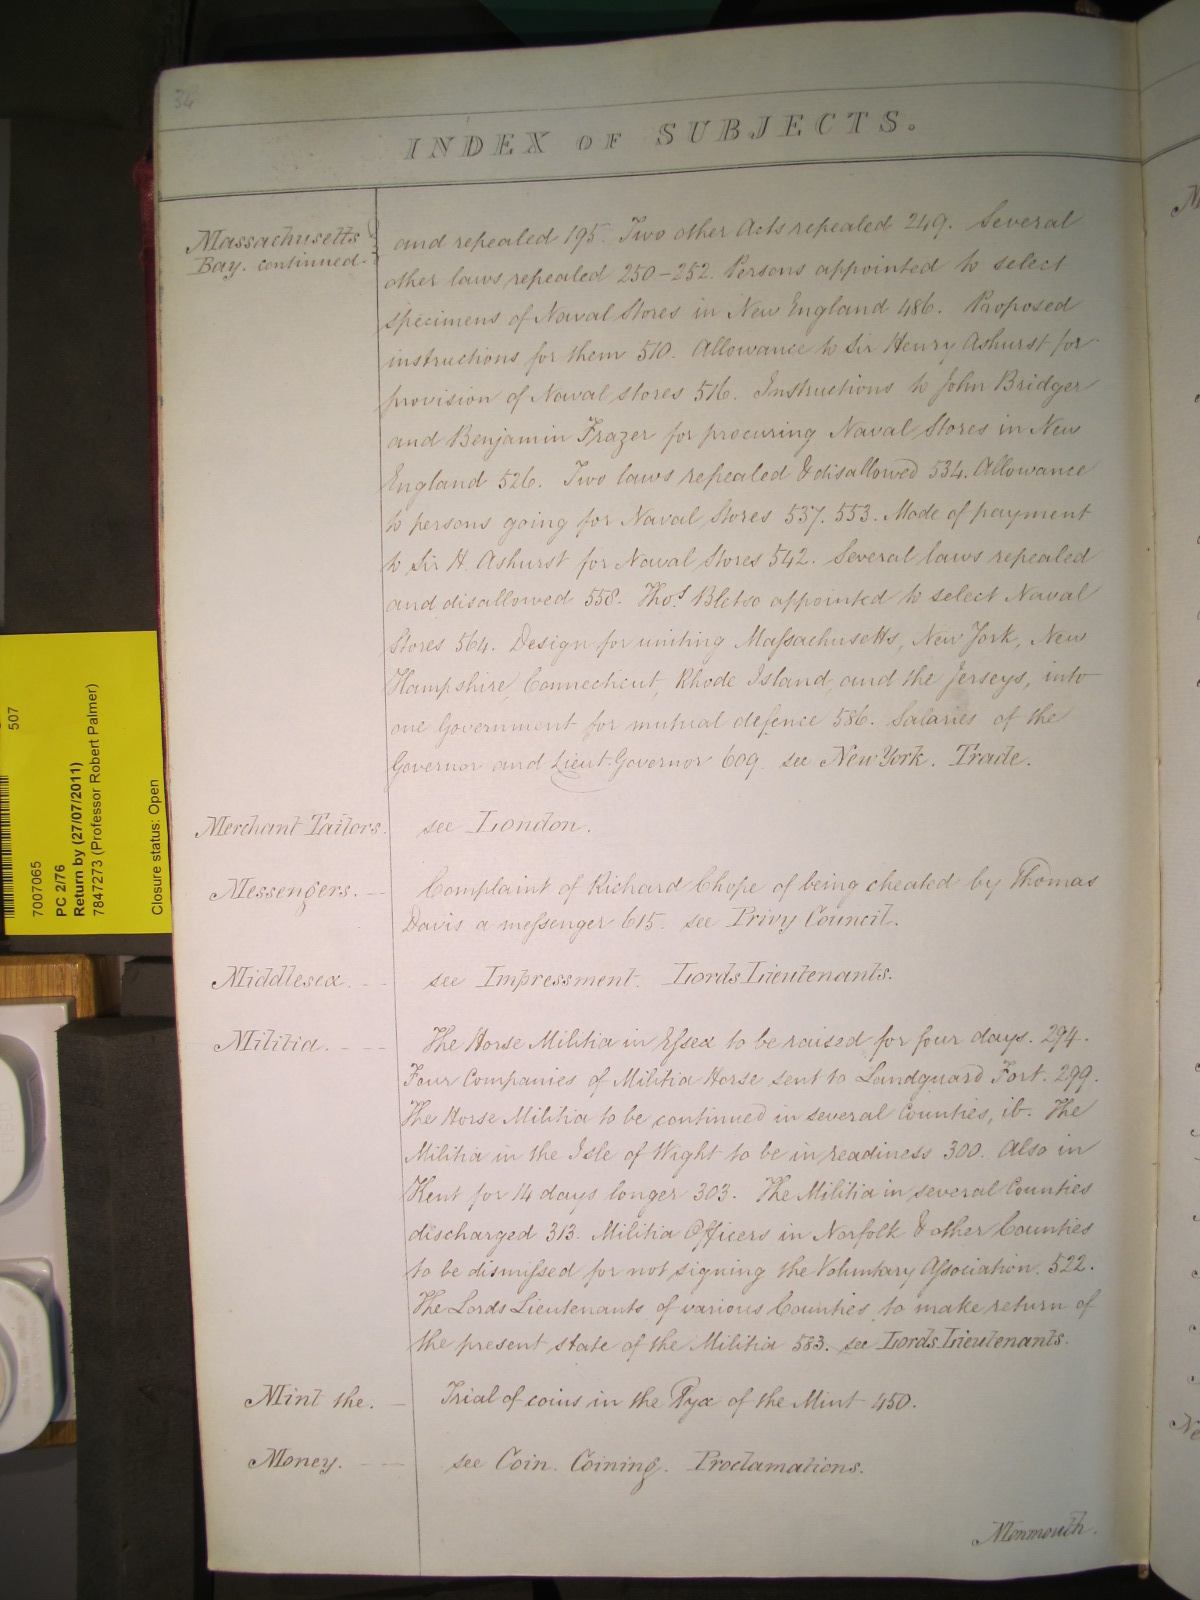 34
INDEX OF SUBJECTS.
Massachusetts
Bay. continued.
and repealed 195. Two other Acts repealed 249. Several
other laws repealed 250-252. Persons appointed to select
specimens of Naval Stores in New England 486. Proposed
instructions for them 510. Allowance to Sir Henry Ashurst for
provision of Naval stores 516. Instructions to John Bridger
and Benjamin Frazer for procuring Naval Stores in New
England 526. Two laws repealed & disallowed 534. Allowance
to persons going for Naval Stores 537. 553. Mode of payment
to Sir H. Ashurst for Naval Stores 542. Several laws repealed
and disallowed 558. Thos. Bletso appointed to select Naval
Stores 564. Design for uniting Maſsachusetts, New York, New
Hampshire, Connecticut, Rhode Island, and the Jerseys, into
one Government for mutual defence 586. Salaries of the
Governor and Lieut. Governor 609. see New York. Trade.
Merchant Tailors. see London.
Messengers. -- Complaint of Richard Chope of being cheated by Thomas
Davis a meſsenger 615. see Privy Council.
Middlesex. -- see Impressment. Lords Lieutenants.
Militia. -- The Horse Militia in Eſsex to be raised for four days. 294.
Four Companies of Militia Horse sent to Landguard Fort. 299.
The Horse Militia to be continued in several Counties, ib. The
Militia in the Isle of Wight to be in readiness 300. Also in
Kent for 14 days longer 303. The Militia in several Counties
discharged 313. Militia Officers in Norfolk & other Counties
to be dismiſsed for not signing the Voluntary Aſsociation. 522.
The Lords Lieutenants of various Counties to make return of
the present state of the Militia 583. see Lords Lieutenants.
Mint the. - Trial of coins in the Pyx of the Mint 450.
Money. -- see Coin. Coining. Proclamations.
Monmouth.
507
7007065
PC 2/76
Return by (27/07/2011)
7847273 (Professor Robert Palmer)
Closure status: Open